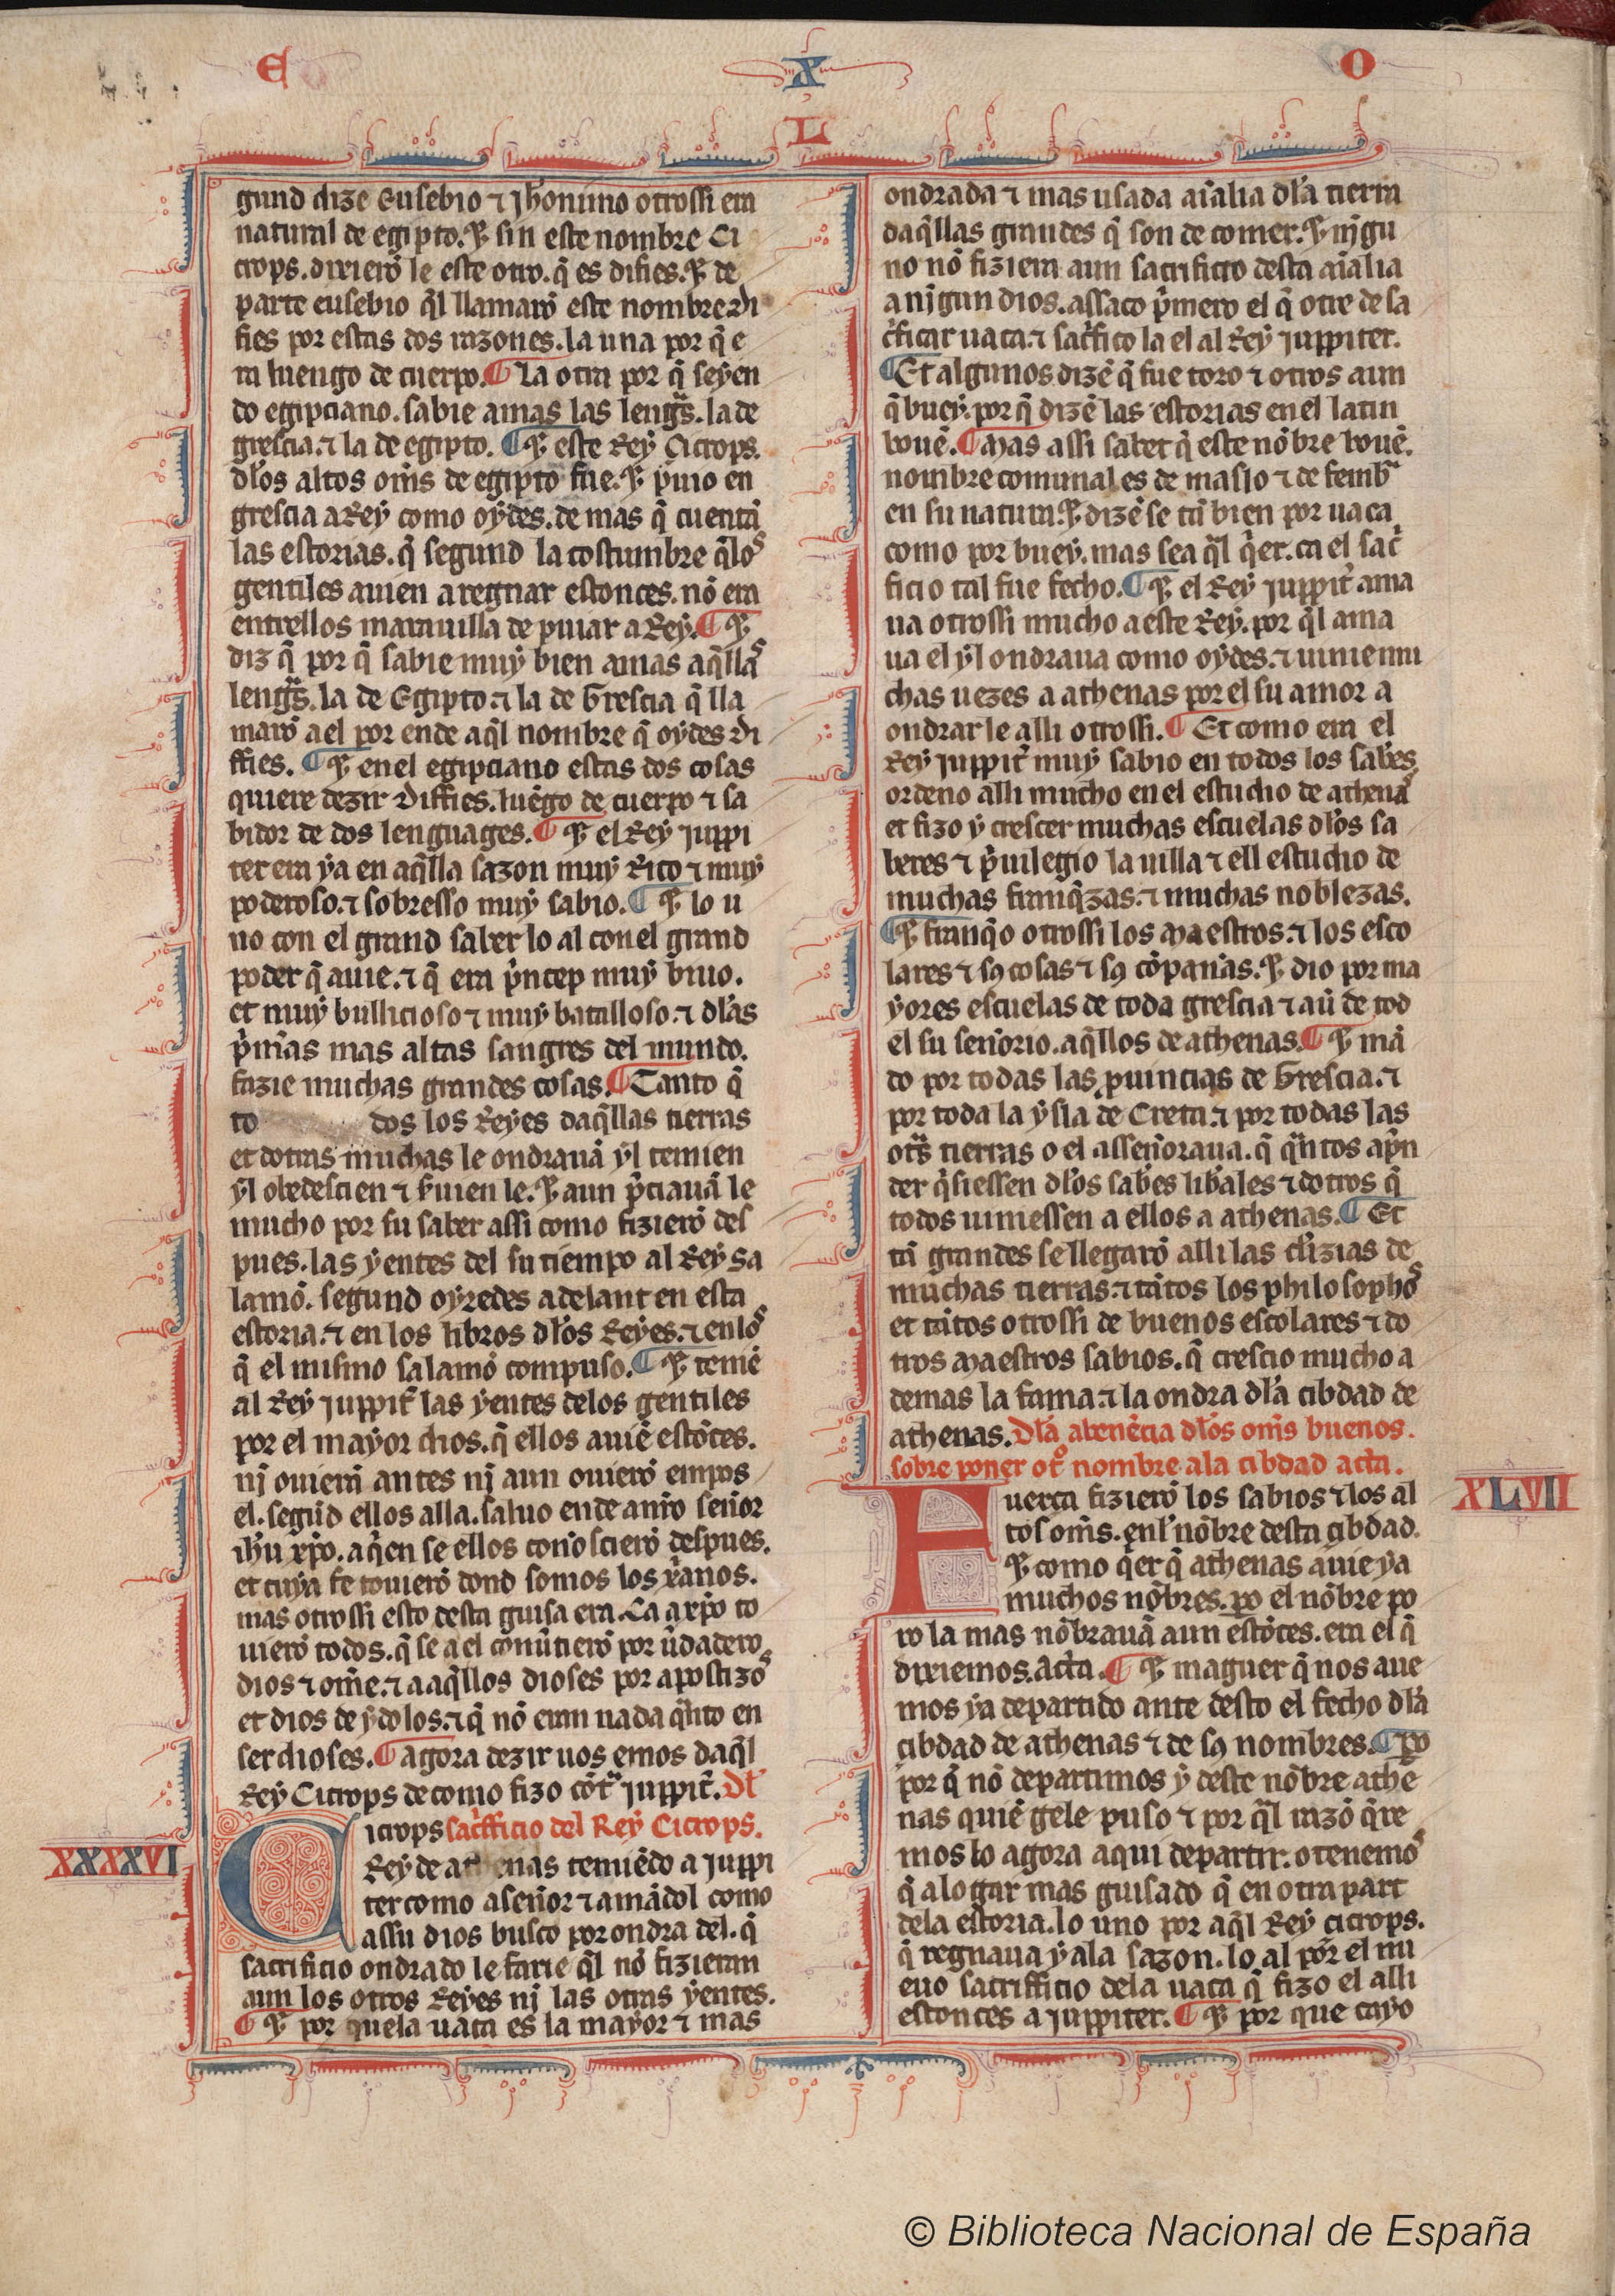 E X O
L
gund dize Eusebio ⁊ Jh̃onimo otrossi era
natural de egipto. ⁊ sin este nombre Ci
crops. dixierõ le este otro. q̃ es difies. ⁊ de
parte eusebio q̃l llamarõ este nombre di
fies por estas dos razones. la una por q̃ e
ra luengo de cuerpo. ¶ La otra por q̃ seyen
do egipciano. sabie amas las lengᵃs. la de
grescia. ⁊ la de egipto. ¶ ⁊ este Rey Cicrops.
dłos altos om̃s de egipto fue. ⁊ p̃uio en
grescia a Rey como oydes. de mas q̃ cuentã
las estorias. q̃ segund la costumbre q̃ los
gentiles auien a regnar estonces. nõ era
entrellos marauilla de puiar a Rey. ¶ ⁊
diz q̃ por q̃ sabie muy bien amas aq̃llas
lengᵃs. la de Egipto. ⁊ la de Grescia q̃ lla
marõ a el por ende aq̃l nombre q̃ oydes di
ffies. ¶ ⁊ en el egipciano estas dos cosas
quiere dezir Diffies. luẽgo de cuerpo ⁊ sa
bidor de dos lenguages. ¶ ⁊ el Rey juppi
ter era ya en aq̃lla sazon muy Rico ⁊ muy
poderoso. ⁊ sobresso muy sabio. ¶ ⁊ lo u
no con el grand saber lo al con el grand
poder q̃ auie. ⁊ q̃ era p̃ncep muy biuo.
et muy bullicioso ⁊ muy batalloso. ⁊ dłas
p̃m̃as mas altas sangres del mundo.
fazie muchas grandes cosas. ¶ Tanto q̃
to dos los Reyes daq̃llas tierras
et dotras muchas le ondrauã yl temien
yl obedescien ⁊ s̃uien le. ⁊ aun p̃ciauã le
mucho por su saber assi como fizierõ des
pues. las yentes del su tiempo al Rey sa
lamõ. segund oyredes adelant en esta
estoria. ⁊ en los libros dłos Reyes. ⁊ en los
q̃ el mismo salamõ compuso. ¶ ⁊ temẽ
al Rey juppit̃ las yentes delos gentiles
por el mayor dios. q̃ ellos auiẽ estõces.
nj ouierã antes nj aun ouierõ empos
el. segũd ellos alla. saluo ende anr̃o señor
ih̃u xp̃o. a q̃en se ellos coñoscierõ despues.
et cuya fe touierõ dond somos los xr̃anos.
mas otrossi esto desta guisa era. Ca a xp̃o to
uierõ todos. q̃ se a el cõnũtierõ por ũdadero
dios ⁊ om̃e. ⁊ a aq̃llos dioses por apostizos
et dios de ydolos. ⁊ q̃ nõ eran nada q̃nto en
ser dioses. ¶ agora dezir uos emos daq̃l
Rey Cicrops de como fizo cõtᵃ juppit̃. Dł
icrops sac̃fficio del Rey Cicrops.
XXXXVI
Rey de athenas temiẽdo a juppi
ter como a señor ⁊ amãdol como
assu dios busco por ondra del. q̃
sacrificio ondrado le farie q̃l nõ fizieran
aun los otros Reyes nj las otras yentes.
¶ ⁊ por quela uaca es la mayor ⁊ mas
ondrada ⁊ mas usada aĩalia dła tierra
daq̃llas grandes q̃ son de comer. ⁊ nj̃gu
no nõ fiziera aun sacrificio desta aĩalia
a nj̃gun dios. assaco p̃mero el q̃ otre de sa
c̃ficar uaca. ⁊ sac̃fico la el al Rey juppiter.
¶ Et algunos dizẽ q̃ fue toro ⁊ otros aun
q̃ buey. por q̃ dizẽ las estorias en el latin
bouẽ. ¶ Mas assi saber q̃ este nõbre bouẽ.
nombre comunal es de maslo ⁊ de fembᵃ
en su natura. ⁊ dizẽ se tã bien por uaca
como por buey. mas sea q̃l q̃er. ca el sac̃
ficio tal fue fecho. ¶ ⁊ el Rey juppit̃ ama
ua otrossi mucho a este Rey. por q̃l ama
ua el yl ondraua como oydes. ⁊ uinie mu
chas uezes a athenas por el su amor a
ondrar le alli otrossi. ¶ Et como era el
Rey juppit̃ muy sabio en todos los sab̃es
ordeno alli mucho en el estudio de athenas
et fizo y crescer muchas escuelas dłos sa
beres ⁊ p̃uilegio la uilla ⁊ ell estudio de
muchas franq̃zas. ⁊ muchas noblezas.
¶ ⁊ franq̃o otrossi los Maestros. ⁊ los esco
lares ⁊ sꝯ cosas ⁊ sꝯ cõpañas. ⁊ dio por ma
yores escuelas de toda grescia ⁊ aũ de tod
el su señorio. aq̃llos de athenas. ¶ ⁊ mã
do por todas las ꝓuincias de Grescia. ⁊
por toda la ysla de Creta. ⁊ por todas las
otᵃs tierras o el asseñoraua. q̃ q̃ntos ap̃n
der q̃siessen dłos sab̃es lib̃ales ⁊ dotros q̃
todos uiniessen a ellos a athenas. ¶ Et
tã grandes se llegarõ alli las cł̃izias de
muchas tierras. ⁊ tãtos los philosophos
et tãtos otrossi de buenos escolares ⁊ do
tros Maestros sabios. q̃ crescio mucho a
demas la fama. ⁊ la ondra dła cibdad de
athenas. Dła abenẽcia dłos om̃s buenos.
sobre poner ot̃º nombre ala cibdad acta.
XLVII
Fuerça fizierõ los sabios ⁊ los al
tos om̃s. enł nõbre desta cibdad.
⁊ como q̃er q̃ athenas auie ya
muchos nõbres. ꝑo el nõbre ꝑo
ro la mas nõbrauã aun estõces. era el q̃
dixiemos. Acta. ¶ ⁊ maguer q̃ nos aue
mos ya departido ante desto el fecho dła
cibdad de athenas ⁊ de sꝯ nombres. ¶ ꝑo
por q̃ nõ departimos y deste nõbre athe
nas quiẽ gele puso ⁊ por q̃l razõ q̃re
mos lo agora aqui departir. o tenemos
q̃ a logar mas guisado q̃ en otra part
dela estoria. lo uno por aq̃l Rey cicrops.
q̃ regnaua y ala sazon. lo al por el nu
euo sacrifficio dela uaca q̃ fizo el alli
estonces a juppiter. ¶ ⁊ por que cayo
© Biblioteca Nacional de España